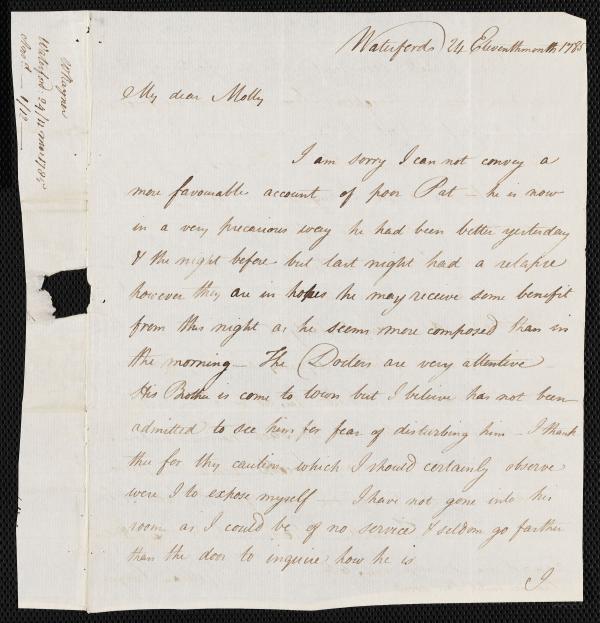 Waterford 24 Eleventhmonth 1785
My dear Molly
I am sorry I can not convey a
more favourable account of poor Pat – he is now
in a very precarious way he had been better yesterday
& the night before but last night had a relapse
however they are in hopes he may receive some benefit
from this night as he seems more composed than in
the morning – The Doctors are very attentive
His Brother is come to town but I believe has not been
admitted to see him for fear of disturbing him – I thank
thee for thy caution which I should certainly observe
were I to expose myself – I have not gone into his
room as I could be of no service & seldom go farther
than the door to inquire how he is
I
Waterford 24/11 mo 1785